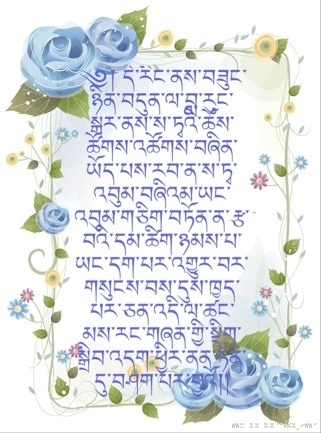 ༄། དེ་རིང་ནས་བཟུང་
ཉིན་བདུན་ལ་བླ་རུང་
སྒར་ནས་ས་ཏྭའི་ཚེས་
ཚོགས་འཚོགས་བཞིན་
ཡོད་པས་རབ་ནས་ཏྲ་
འབུམ་བཞིའམ་ཡང་
འབུམ་གཅིག་བཏོན་ན་རྩ་
བའི་དམ་ཚིག་ཉམས་པ་
ཡང་དག་པར་འགྱུར་བར་
གསུངས་བས་དུས་ཁྱད་
པར་ཅན་འདི་ལ་ཚང་
མས་རང་གཞན་གྱི་སྡིག་
སྒྲིབ་འདག་ཕྱིར་ནན་ཏན་
དུ་བཤག་པར་གྱིས།།